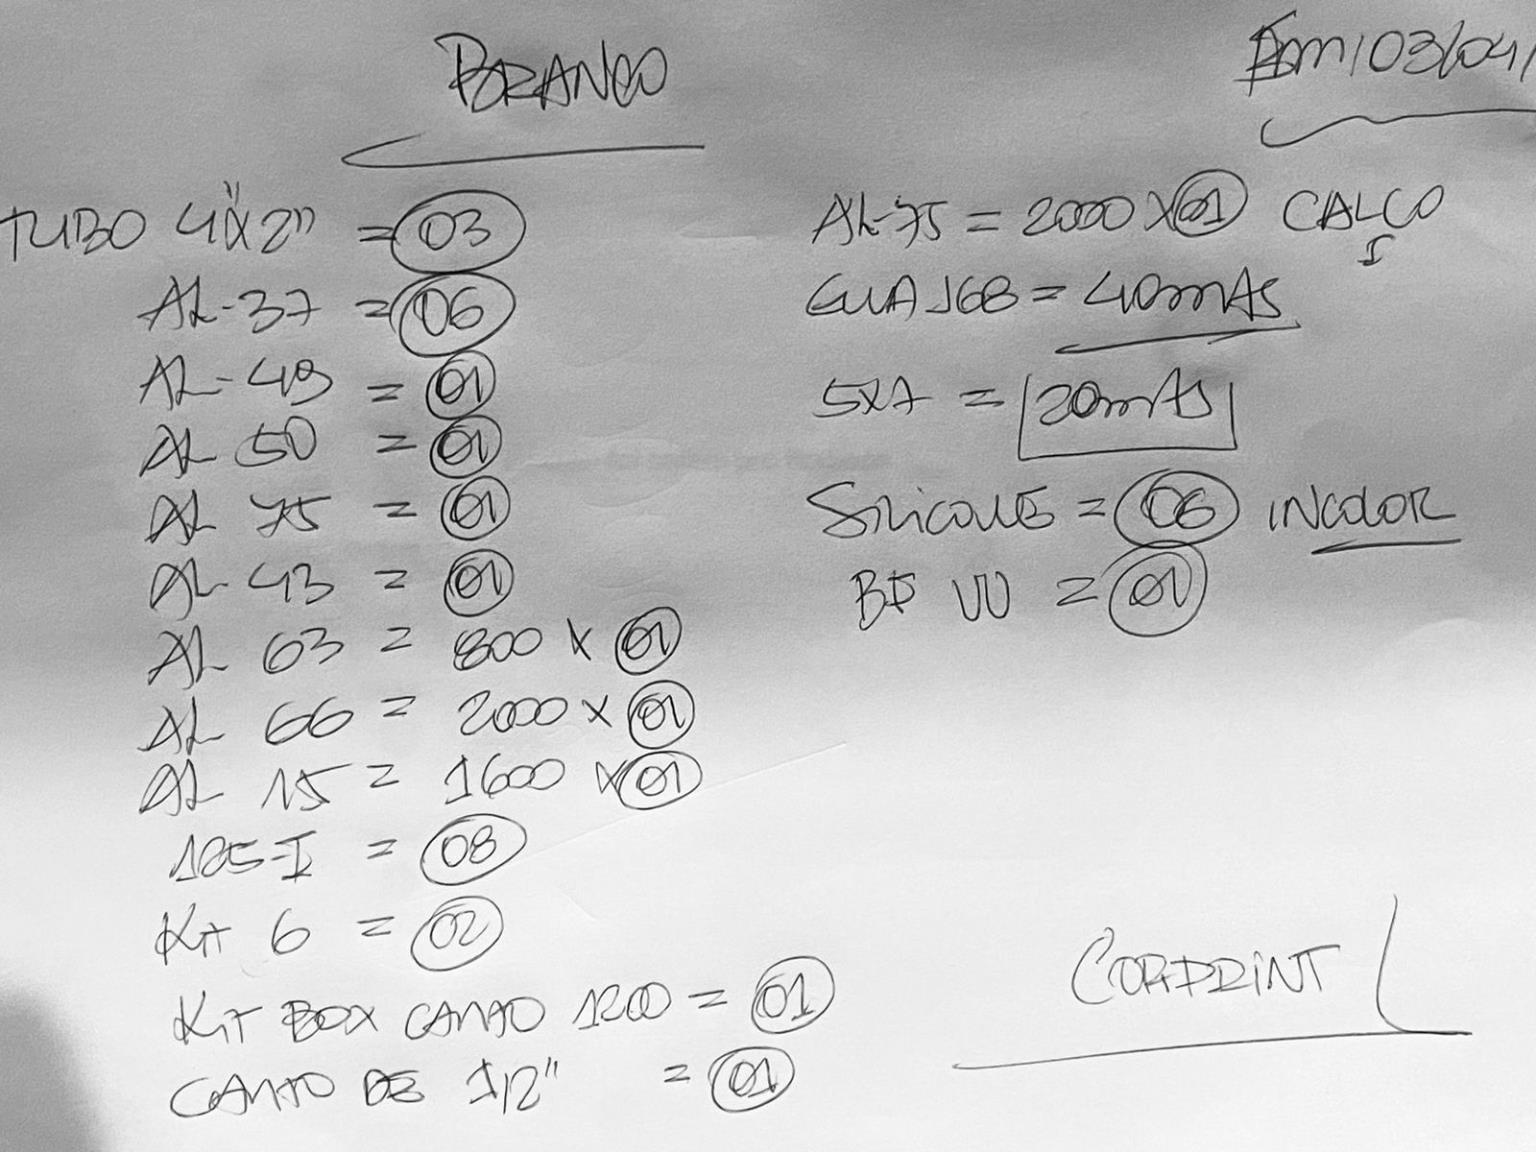 BRANCO
Em/03/04/
TUBO 4"x2" = 03
AL-37 = 06
AL-49 = 01
AL 50 = 01
AL 75 = 01
AL 43 = 01
AL 63 = 800 x 01
AL 66 = 2000 x 01
AL 15 = 1600 x 01
185-I = 08
Kit 6 = 02
KIT BOX CANTO 1200 = 01
CANTO DE 1/2" = 01
AL-75 = 2000 x 01 CALÇO
= 40mts
5x7 = 20mts
SILICONE = 06 INCOLOR
= 01
CORPRINT